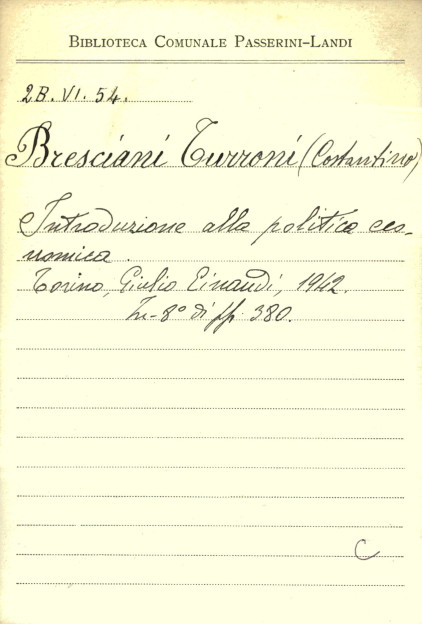 BIBLIOTECA COMUNALE PASSERINI-LANDI
2B.VI.54.
Bresciani Turroni (Costantino)
Introduzione alla politica eco-
nomica.
Torino, Giulio Einaudi, 1942.
In-8° di pp. 380.
C